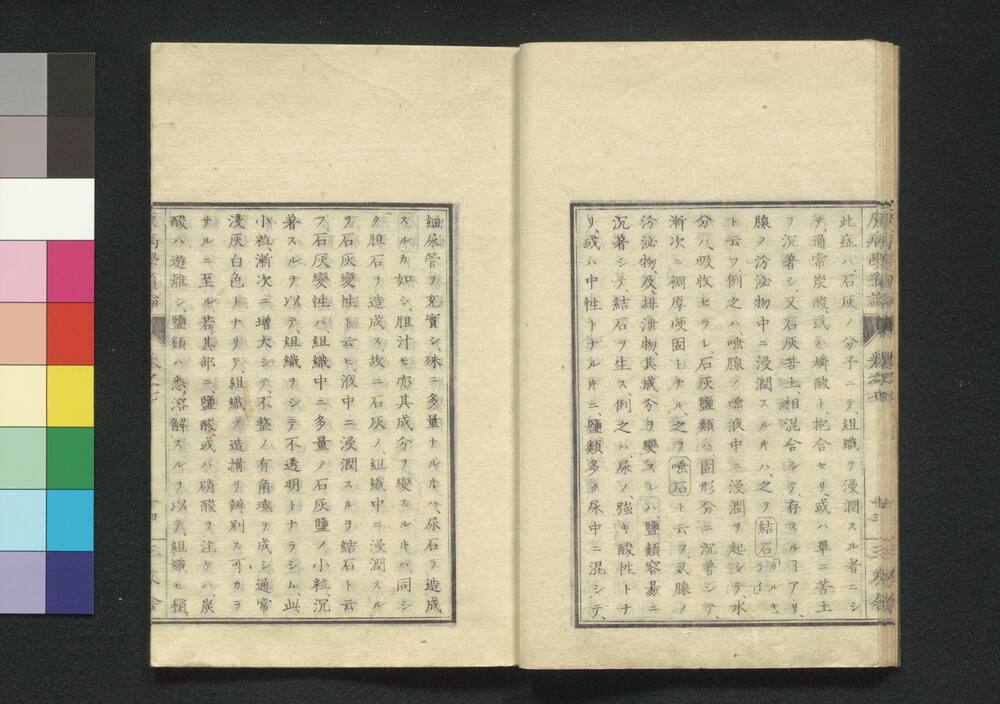 此症ハ、石灰ノ分子ニテ、組織ヲ浸潤スル者ニシ
テ、通常炭酸、或ハ燐酸ト、抱合セリ、或ハ單ニ苦土
ヲ沉著シ、又石灰苦土、相混合シテ、存スルヿアリ、
腺ノ汾泌物中ニ浸潤スルキハ、之ヲ結石
ト云フ、例之ハ、唾腺ノ唾液中ニ浸潤ヲ起シテ、水
分ハ、吸收セラレ、石灰鹽類ハ、固形分ニ沉著シテ、
漸次ニ稠厚硬固トナル、之ヲ唾石ト云ヲ、又腺ノ
汾泌物、及排泄物、其成分ヲ變スレハ、鹽類容昜ニ
沉著シテ、結石ヲ生ス、例之ハ、尿ノ、強キ酸性トナ
リ、或ハ中性トナルキニ、鹽類多ク尿中ニ混シテ、
細尿管ヲ充實シ、殊ニ多量ナルキハ、尿石ヲ造成
スルカ如シ、胆汁モ亦其成分ヲ變スルキハ、同シ
ク胆石ヲ造成ス、故ニ石灰ノ、組織中ニ浸潤スル
ヲ石灰變性ト云ヒ、液中ニ浸潤スルヲ結石ト云
フ、石灰變性ハ、組織中ニ多量ノ石灰鹽ノ小粒、沉
著スルヲ以テ、組織ヲシテ不透明トナラシム、此
小粒、漸次ニ増大シテ、不整ノ有角塊ヲ成シ、通常
淺灰白色トナリテ、組織ノ造搆ヲ辨別ス可カラ
サルニ至ル、若其部ニ、鹽酸或ハ硝酸ヲ注ケハ、炭
酸ハ遊離シ、鹽類ハ悉溶解スルヲ以テ、組織モ稍